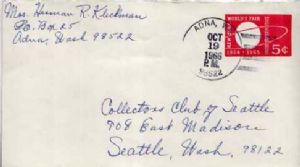 Mrs. Herman R. Kleekman
P.O. Box 27
Adna, Wash 98522
ADNA,
OCT
19
1966
P.M.
98522
WORLD'S FAIR
1964 - 1965
5¢
Collectors Club of Seattle
708 East Madison
Seattle, Wash. 98122